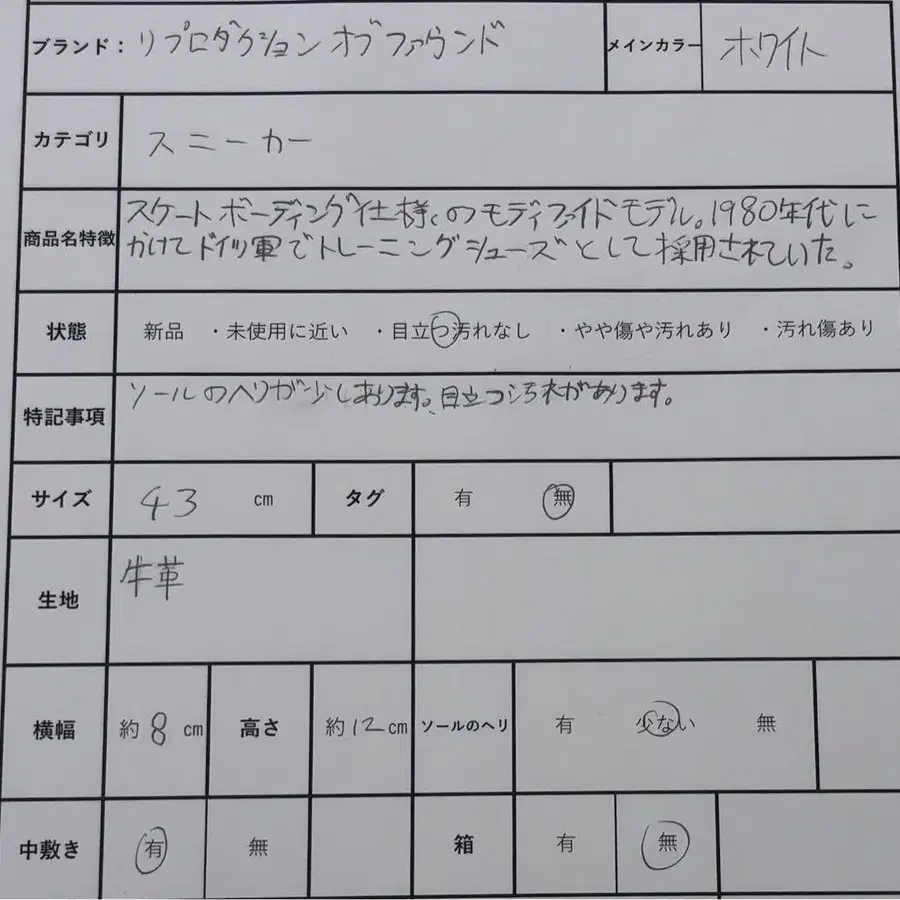 ブランド： リプロダクション オブ ファウンド メインカラー ホワイト
カテゴリ スニーカー
商品名特徴 スケートボーディング仕様のモディファイドモデル。1980年代に
かけてドイツ軍でトレーニングシューズとして採用されていた。
状態 新品 ・未使用に近い ・目立つ汚れなし ・やや傷や汚れあり ・汚れ傷あり
特記事項 ソールのヘリが少しあります。目立つ汚れがあります。
サイズ 43 cm タグ 有 無
生地 牛革
横幅 約8cm 高さ 約12cm ソールのヘリ 有 少ない 無
中敷き 有 無 箱 有 無